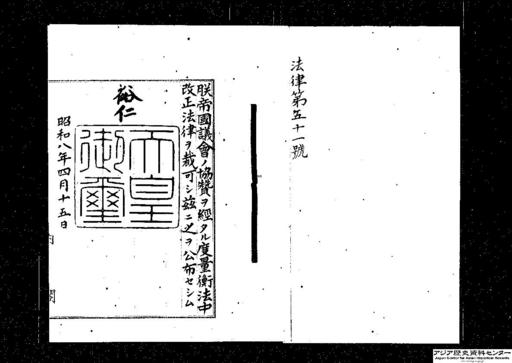 法律第五十一號
朕帝國議會ノ協贊ヲ經タル度量衡法中
改正法律ヲ裁可シ茲ニ之ヲ公布セシム
裕仁
天皇
御璽
昭和八年四月十五日
内閣
アジア歴史資料センター
Japan Center for Asian Historical Records